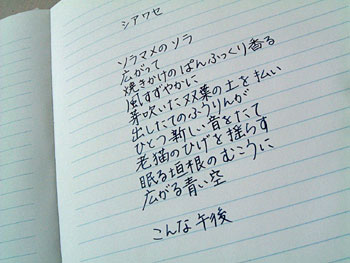 シアワセ
ソラマメのソラ
広がって
焼きかけのぱんふっくり香る
風すずやかに
芽吹いた双葉の土を払い
出したてのふうりんが
ひとつ新しい音をたて
老猫のひげを揺らす
眠る垣根のむこうに
広がる青い空
こんな午後